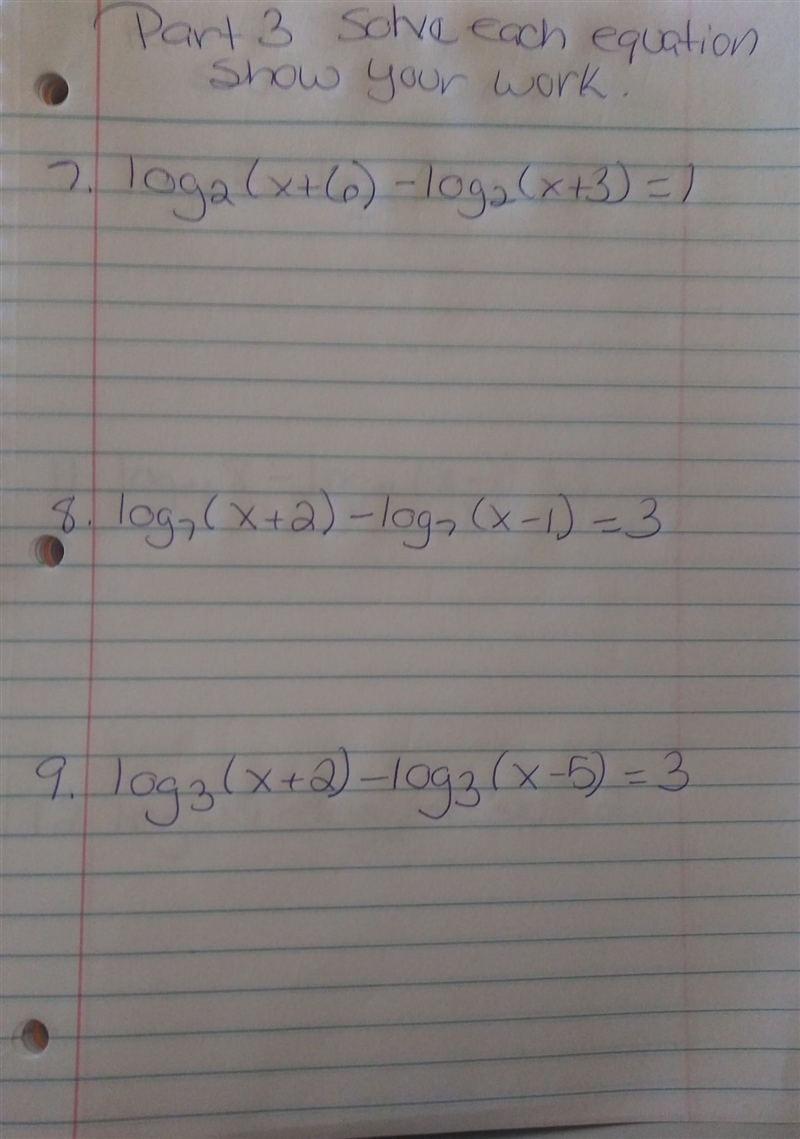 Part 3 Solve each equation
Show your work.
7. log₂(x+6) - log₂(x+3) = 1
8. log₇(x+2) - log₇(x-1) = 3
9. log₃(x+2) - log₃(x-5) = 3